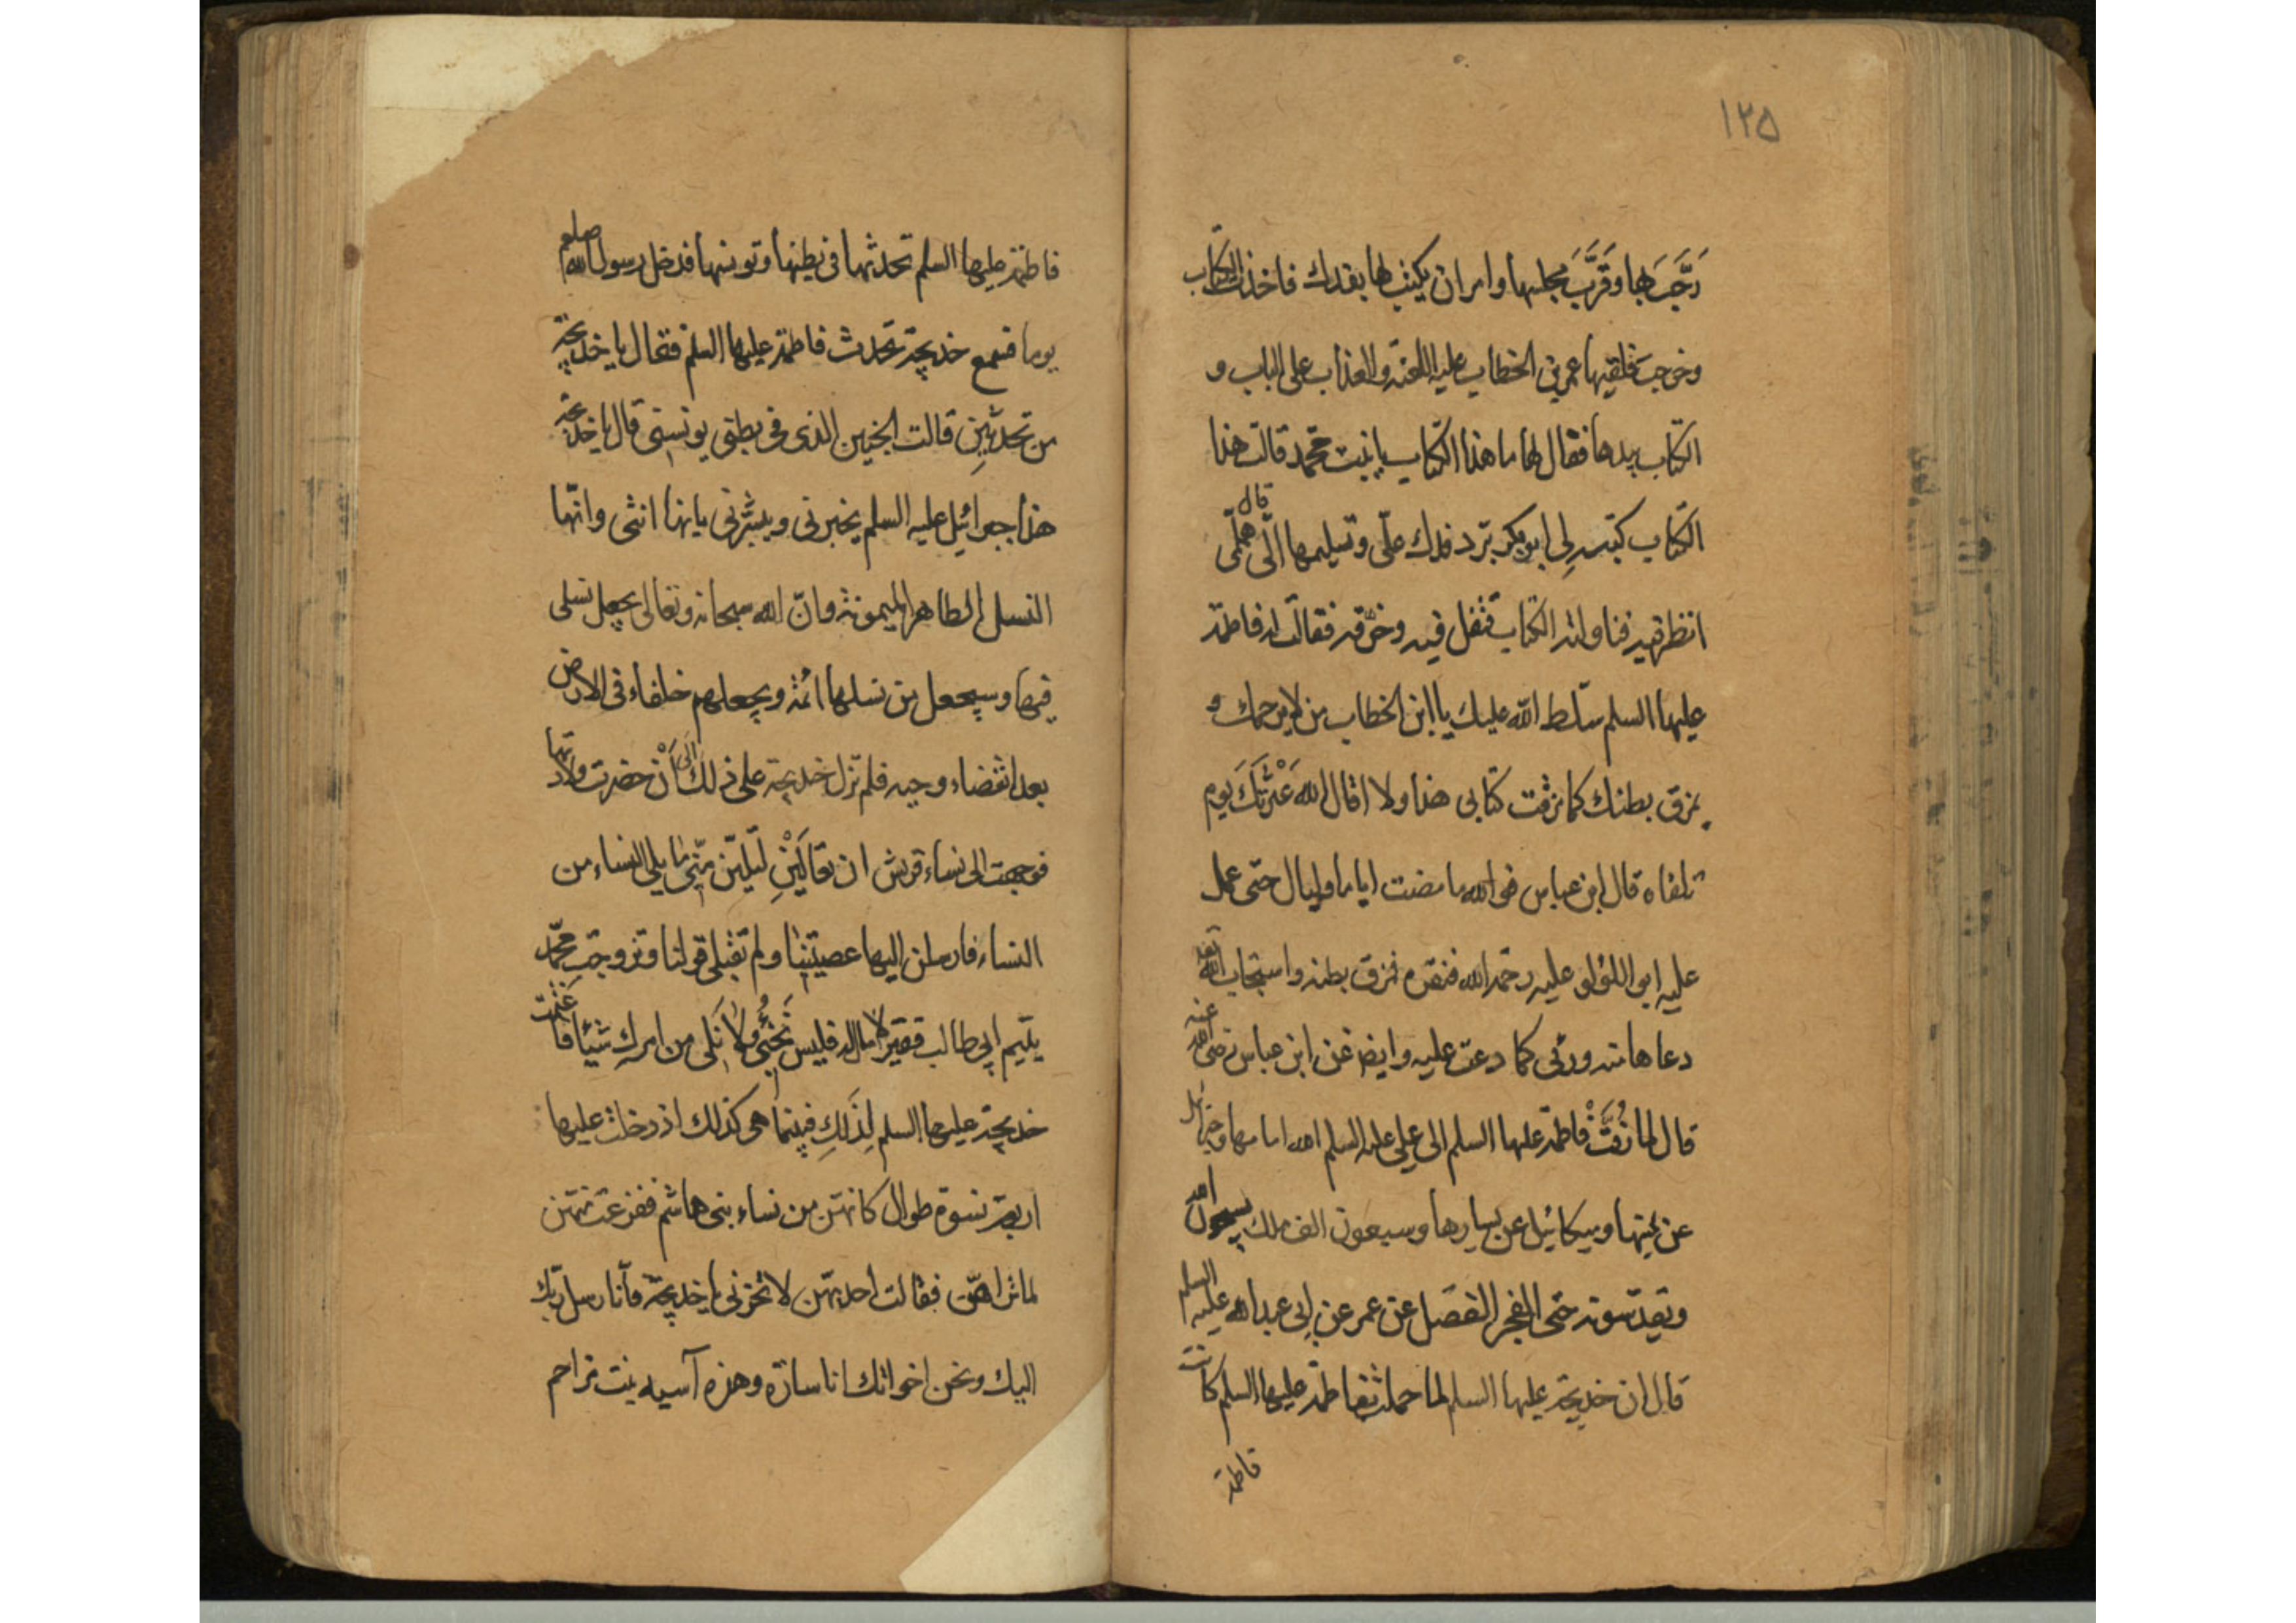 ١٢٥
رَحَّبَ بها وقَرَّبَ مجلسها وامر ان یکتب لها بفدك فاخذت الکتاب
وخرجت فلقیها عمر بن الخطاب علیه اللعنه والعذاب علی الباب و
الکتاب بیدها فقال لها ما هذا الکتاب یا بنت محمد قالت هذا
الکتاب کتبه لی ابوبکر بردّ فدك علیّ وتسلیمها الیّ قال هلمّی
انظر فیه فناولته الکتاب فتفل فیه وخرّقه فقالت له فاطمة
علیها السلم سلّط الله علیك یا ابن الخطاب من لا یرحمك و
یمزق بطنك کما مزقت کتابی هذا ولا اقال الله عَثْرَتَكَ یوم
تلقاه قال ابن عباس فوالله ما مضت ایاما ولیال حتی عمل
علیه ابی اللؤلؤ علیه رحمة الله فنقره فمزق بطنه واستجاب الله تع
دعاها منه ورئی کما دعت علیه وایضا عن ابن عباس رضی الله عنه
قال لما زُفَّتْ فاطمة علیها السلم الی علی علیه السلم الله امامها وجبرائیل
عن یمینها ومیکائیل عن یسارها وسبعون الف ملك یسبحون الله
ویقدّسونه حتی الفجر المفضل عن عمر عن ابی عبدالله علیه السلم
قال ان خدیجة علیها السلم لما حملت بفاطمة علیها السلم کانت
فاطمة
فاطمة علیها السلم تحدثها فی بطنها وتونسها فدخل رسول الله صلعم
یوما فسمع خدیجة تحدث فاطمة علیها السلم فقال یا خدیجة
من تحدّثین قالت الجنین الذی فی بطنی یونسنی قال یا خدیجة
هذا جبرائیل علیه السلم یخبرنی ویبشّرنی بانها انثی وانّها
النسل الطاهر المیمونة وانّ الله سبحانه وتعالی یجعل نسلی
فیها وسیجعل من نسلها ائمة ویجعلهم خلفاء فی الارض
بعد انقضاء وحیه فلم تزل خدیجة علی ذلك الی أنْ حضرت ولادتها
فوجهت الی نساء قریش ان تعالَیْنِ لتلینّ منّی ما یلی النساء من
النساء فارسلن الیها عصیتینا ولم تقبلی قولنا وتزوجتِ محمّد
یتیم ابی طالب فقیر لا مال له فلیس نَجِئُ ولا نَلی من امرك شیئا فاغتمّت
خدیجة علیها السلم لِذَلِكِ فبینما هی کذلك اذ دخلت علیها
اربعة نسوة طوال کانهنّ من نساء بنی هاشم ففزعت منهن
لما راهنّ فقالت احدیهنّ لا تحزنی یا خدیجة فأنا رسل ربّك
الیك ونحن اخوانك انا سارة وهذه آسیه بنت مزاحم